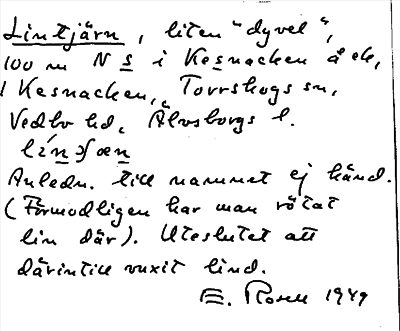 Lintjärn, liten "dyvel",
100 m N s i Kesnacken å ek,
i Kesnacken, Torrskogs sn,
Vedbo hd, Älvsborgs l.
Anledn. till namnet ej känd.
(Förmodligen har man rötat
lin där). Uteslutet att
därintill vuxit lind.
E. Rosell 1949